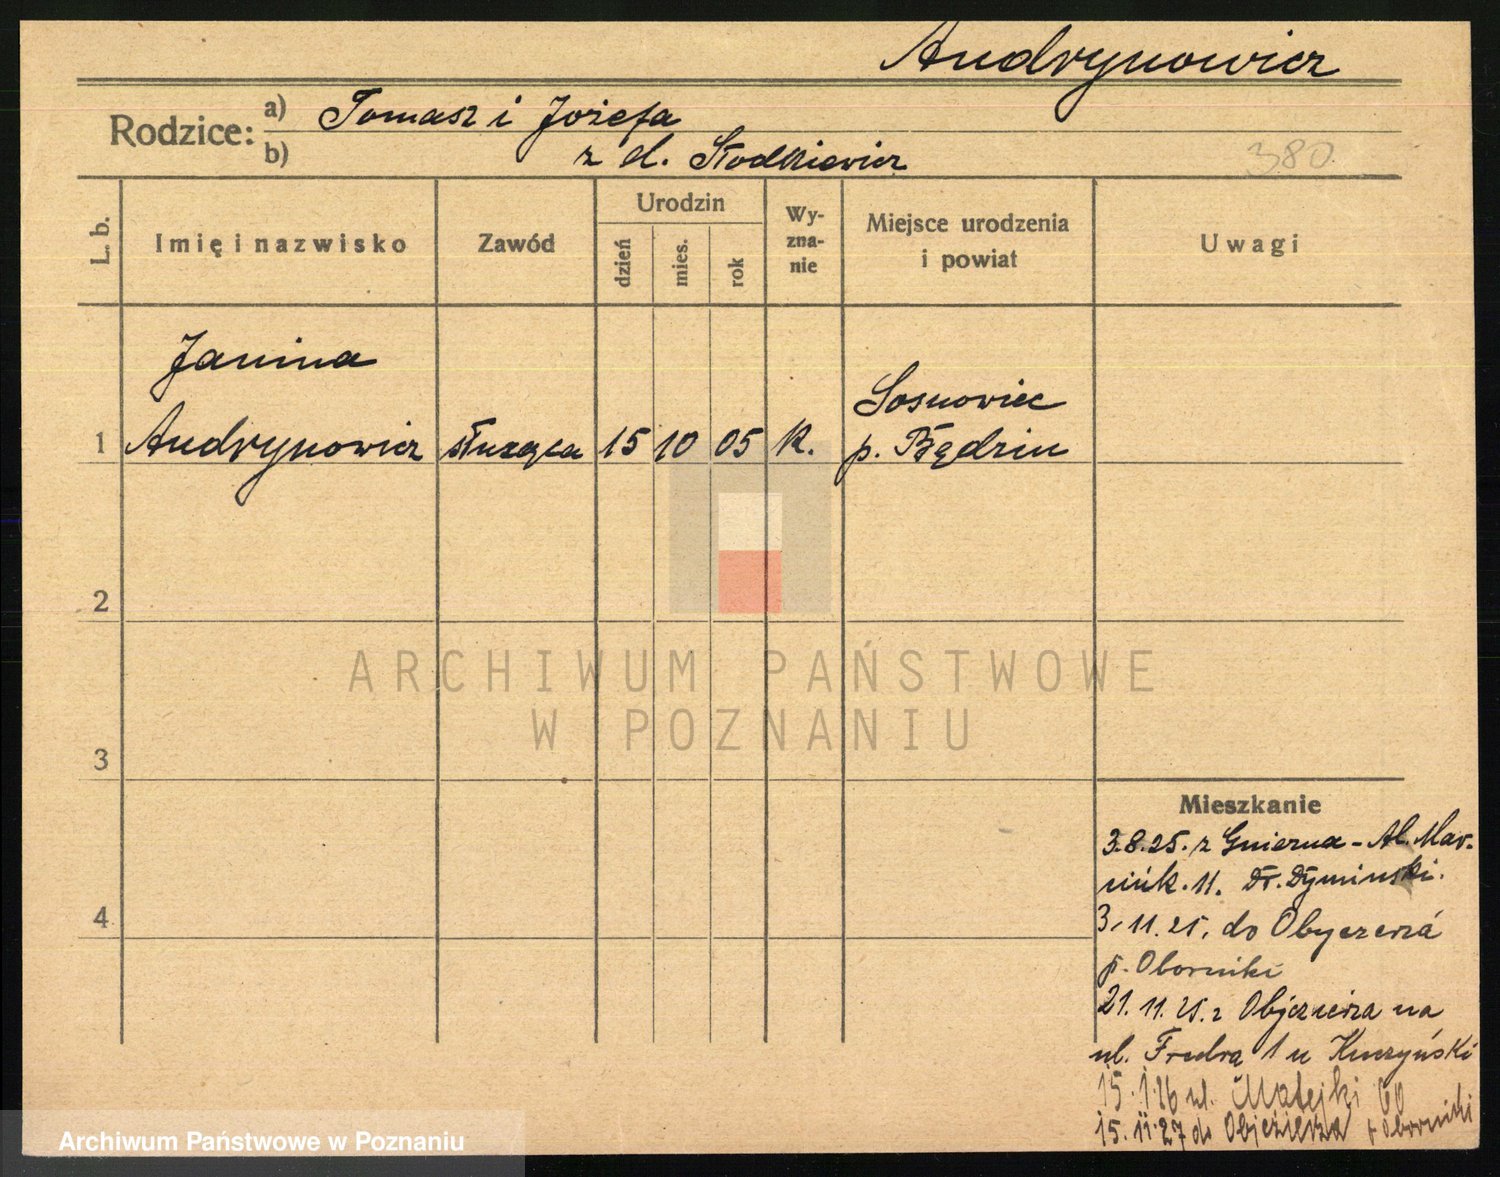 Andrynowicz
Rodzice: a) Tomasz i Józefa
b) z d. Słodkiewicz
380
L. b. Imię i nazwisko Zawód Urodzin dzień mies. rok Wy-zna-nie Miejsce urodzenia i powiat Uwagi
Janina
1 Andrynowicz służąca 15 10 05 K. Sosnowiec
p. Będzin
2
3
4
ARCHIWUM PAŃSTWOWE
W POZNANIU
Mieszkanie
3.8.25. z Gniezna - Al. Mar-
cink. 11. Dr. Dymiński.
3.11.25. do Obyezerza
p. Oborniki
21.11.25. z na
ul. Fredra 1 u
15.1.26 ul. Matejki 60
15.11.27 do Objezierza p Oborniki
Archiwum Państwowe w Poznaniu